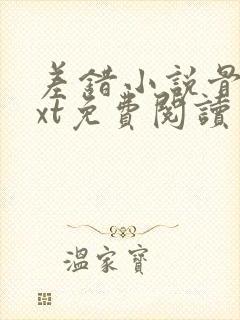 差錯小說景
xt免費閱讀
溫家寶